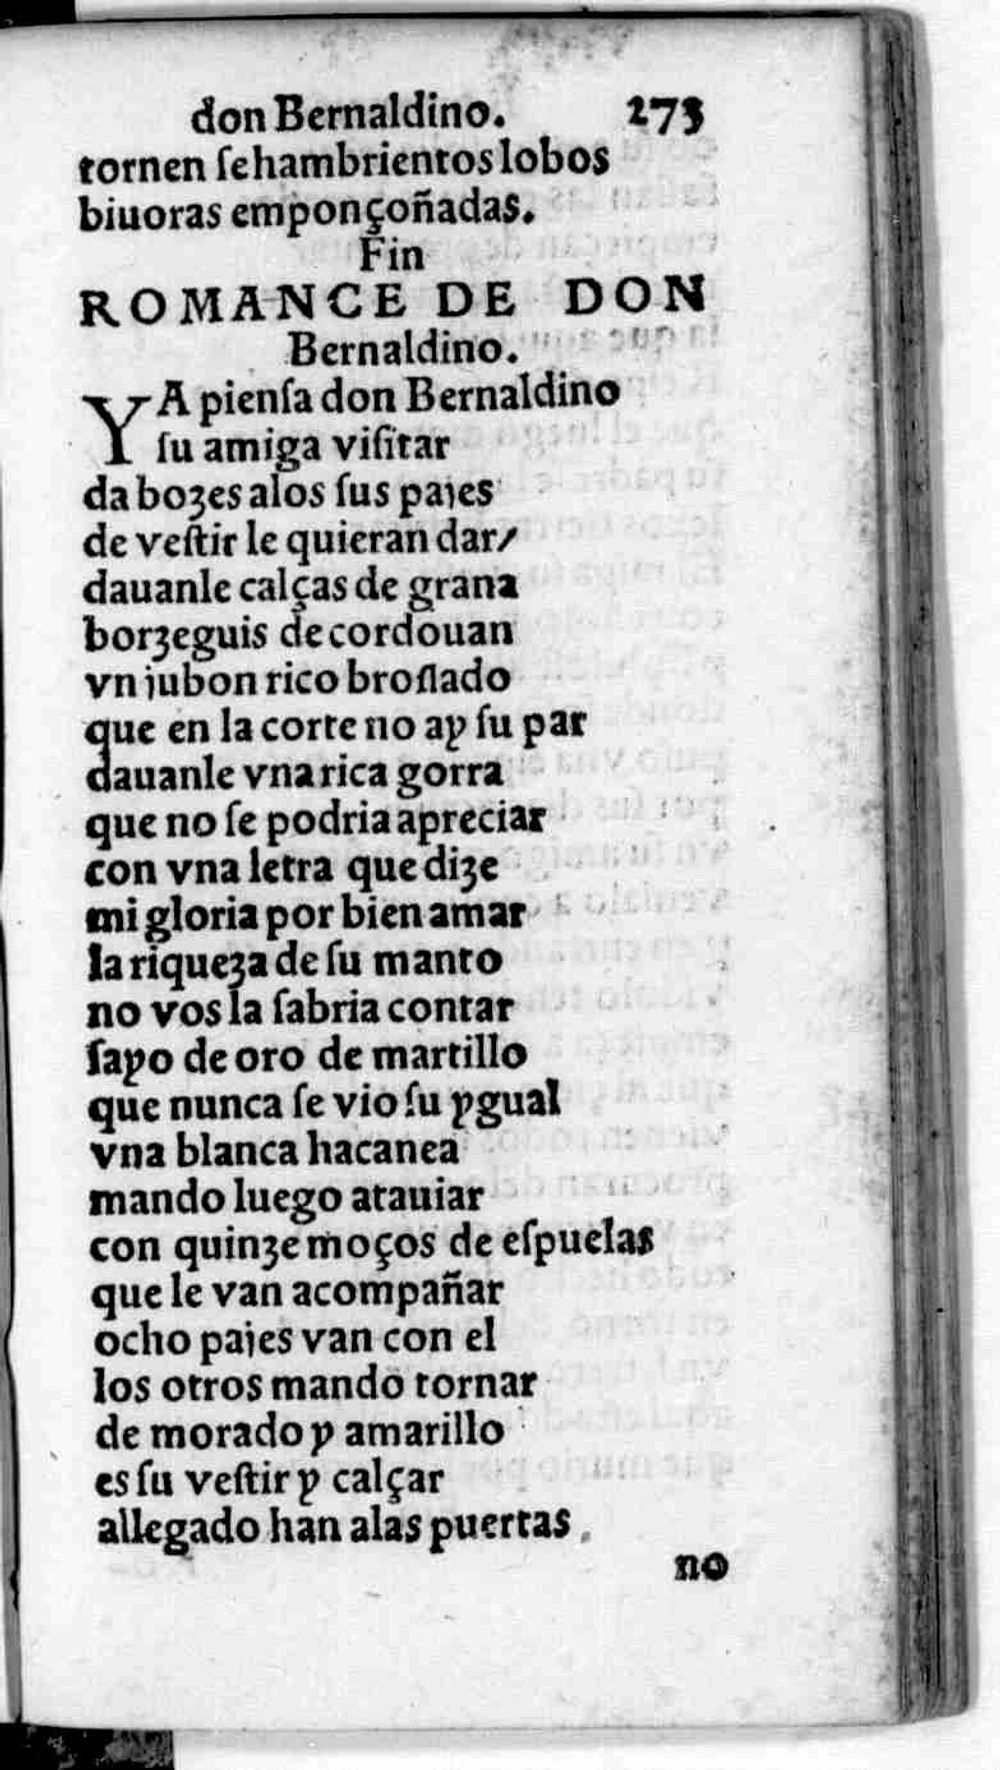 don Bernaldino. 273
tornen ſe hambrientos lobos
biuoras emponçoñadas.
Fin
ROMANCE DE DON
Bernaldino.
YA pienſa don Bernaldino
ſu amiga viſitar
da bozes alos ſus pajes
de veſtir le quieran dar/
dauanle calças de grana
borzeguis de cordouan
vn jubon rico broſlado
que en la corte no ay ſu par
dauanle vna rica gorra
que no ſe podria apreciar
con vna letra que dize
mi gloria por bien amar
la riqueza de ſu manto
no vos la ſabria contar
ſayo de oro de martillo
que nunca ſe vio ſu ygual
vna blanca hacanea
mando luego atauiar
con quinze moços de eſpuelas
que le van acompañar
ocho pajes van con el
los otros mando tornar
de morado y amarillo
es ſu veſtir y calçar
allegado han alas puertas.
no